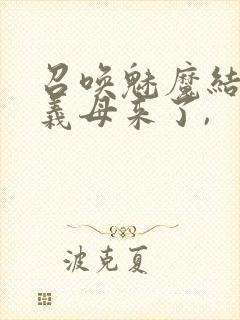 召喚魅魔結
義母来了,
波克夏